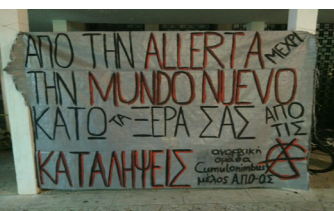 ΑΠΟ ΤΗΝ ALLERTA ΜΕΧΡΙ
ΤΗΝ MUNDO NUEVO
ΚΑΤΩ ΞΕΡΑ ΣΑΣ ΑΠΟ ΤΙΣ
ΚΑΤΑΛΗΨΕΙΣ
αναρχική
ομάδα
Cumulonimbus
μέλος Α.Π.Ο-Ο.Σ